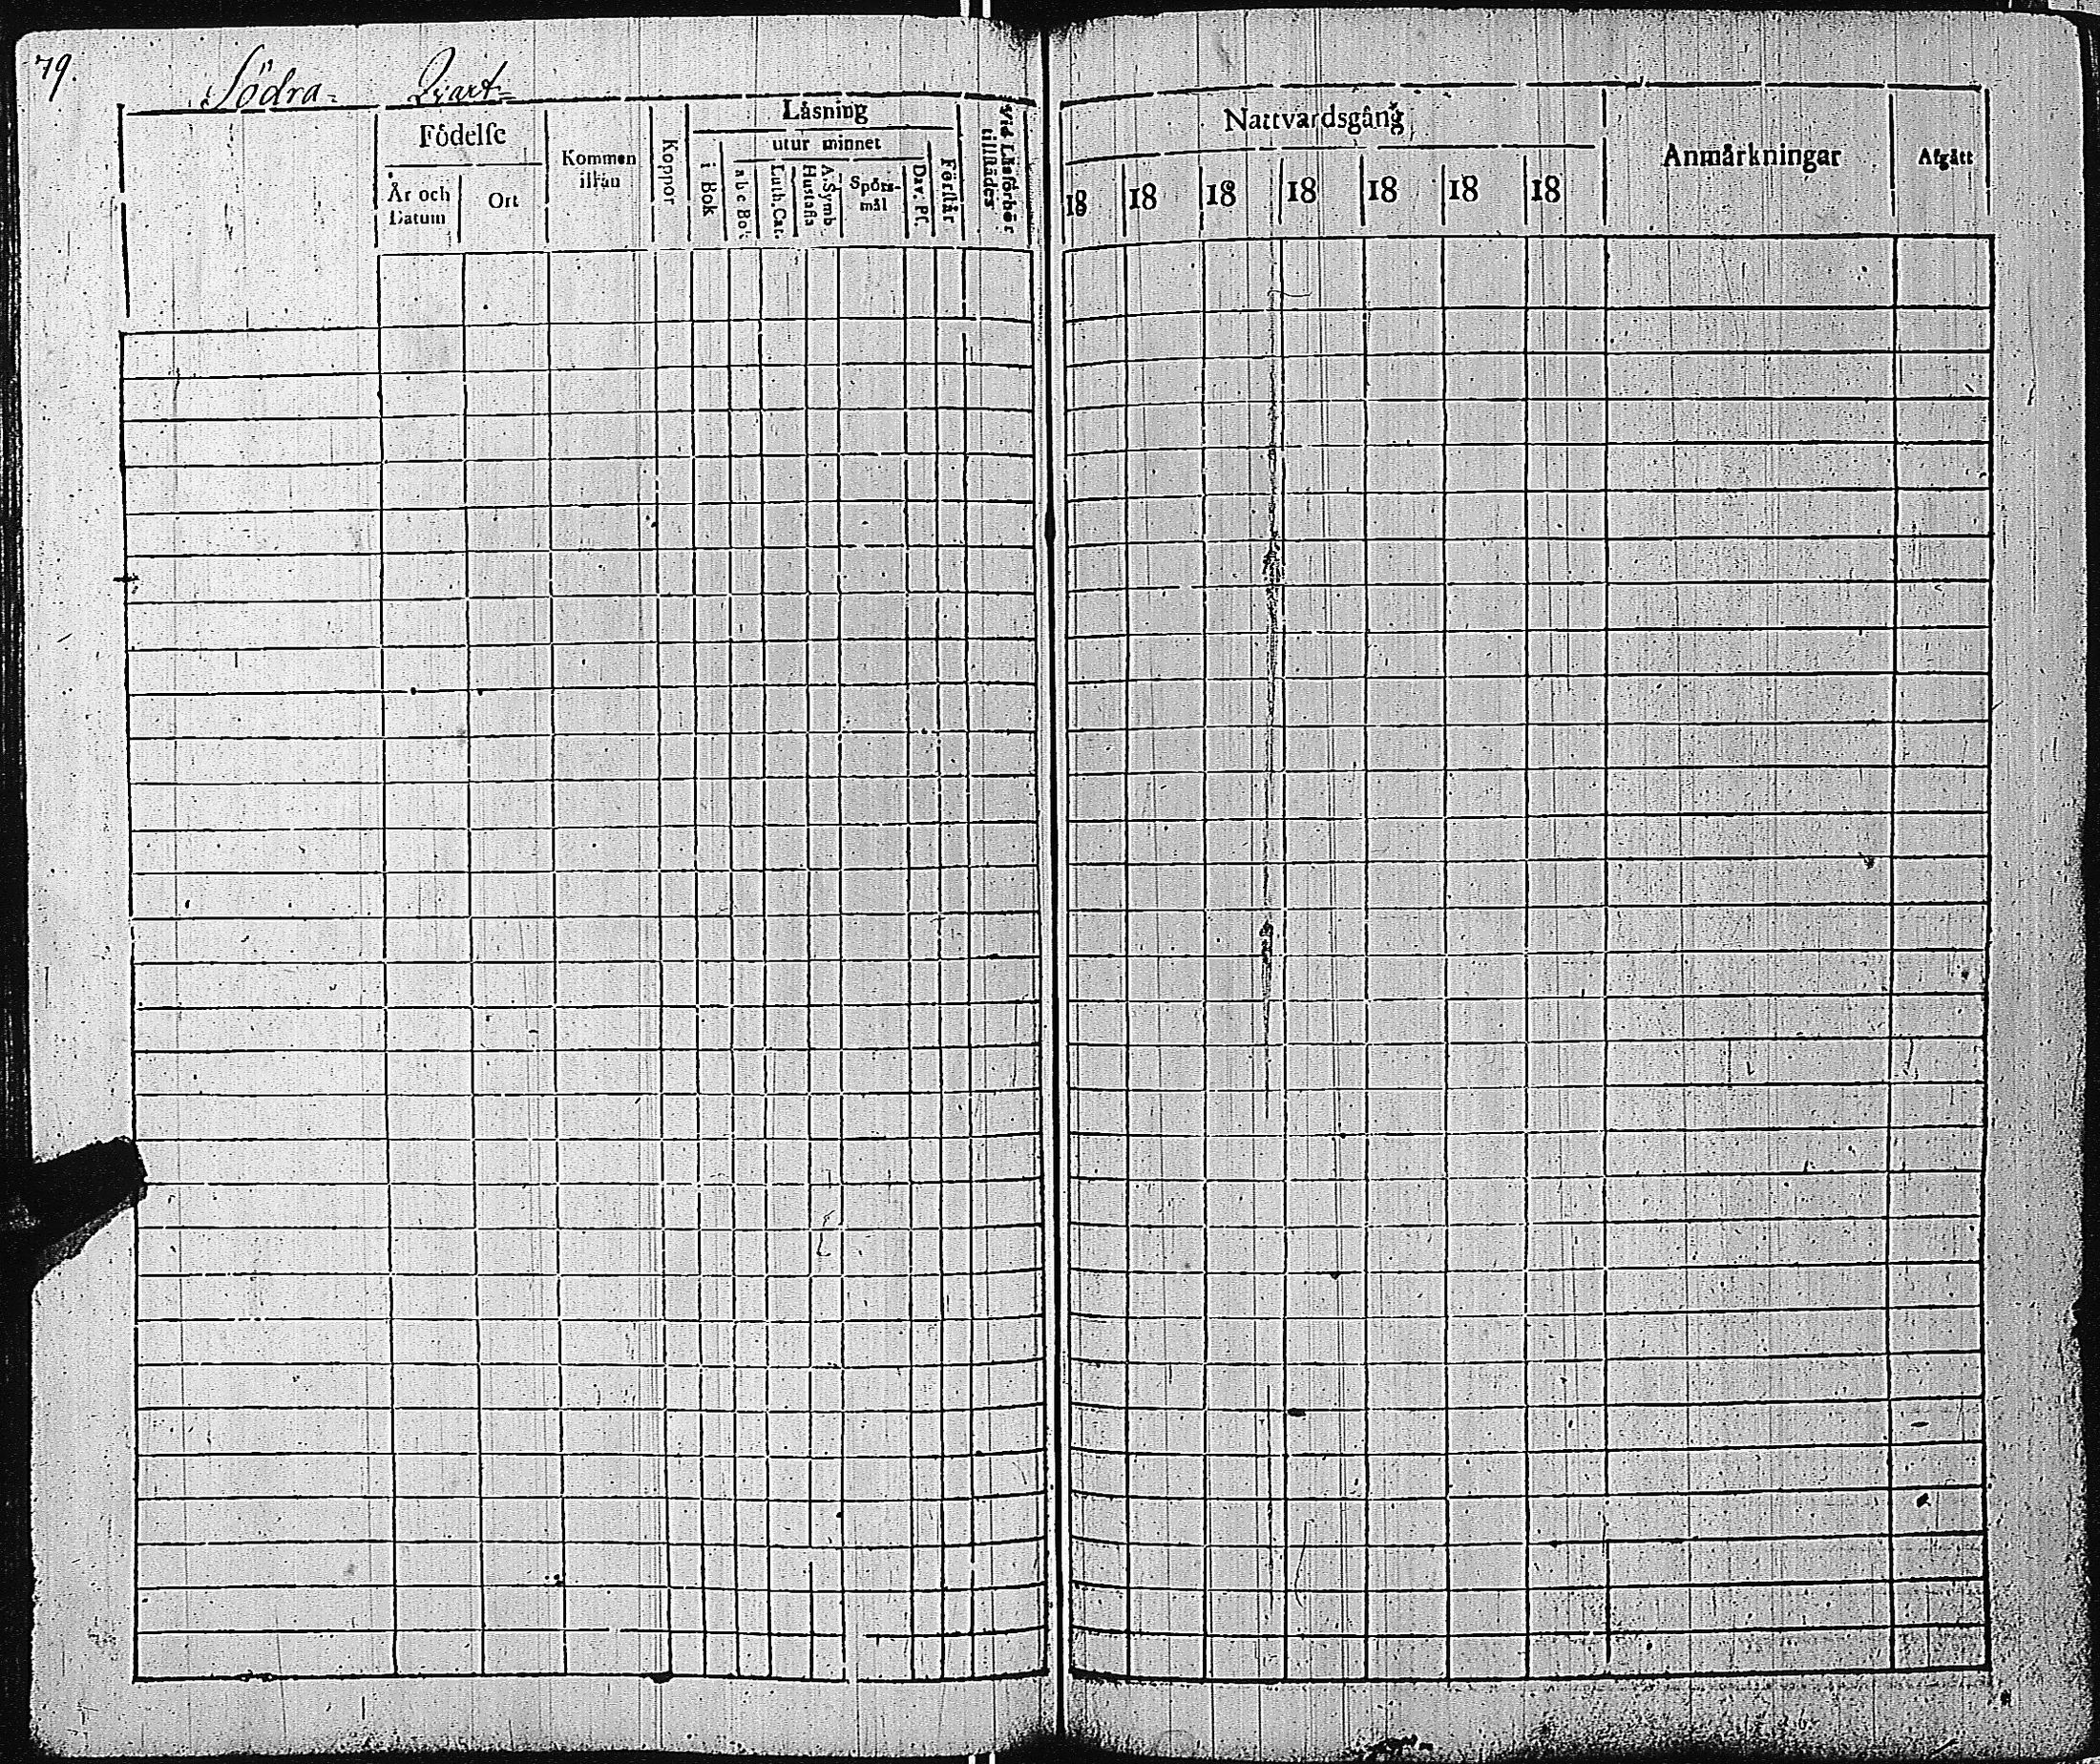 79.
Södra Qvart
Födelse
År och Datum
Ort
Kommen ifrån
Koppor
Läsning
i Bok
utur minnet
a b c Bok
Luth. Cat.
Hustafla
A. Symb.
Spörs-mål
Dav. Ps.
Förstår
Vid Läsförhör tillstädes
Nattvardsgång
18 18 18 18 18 18 18
Anmärkningar
Afgått